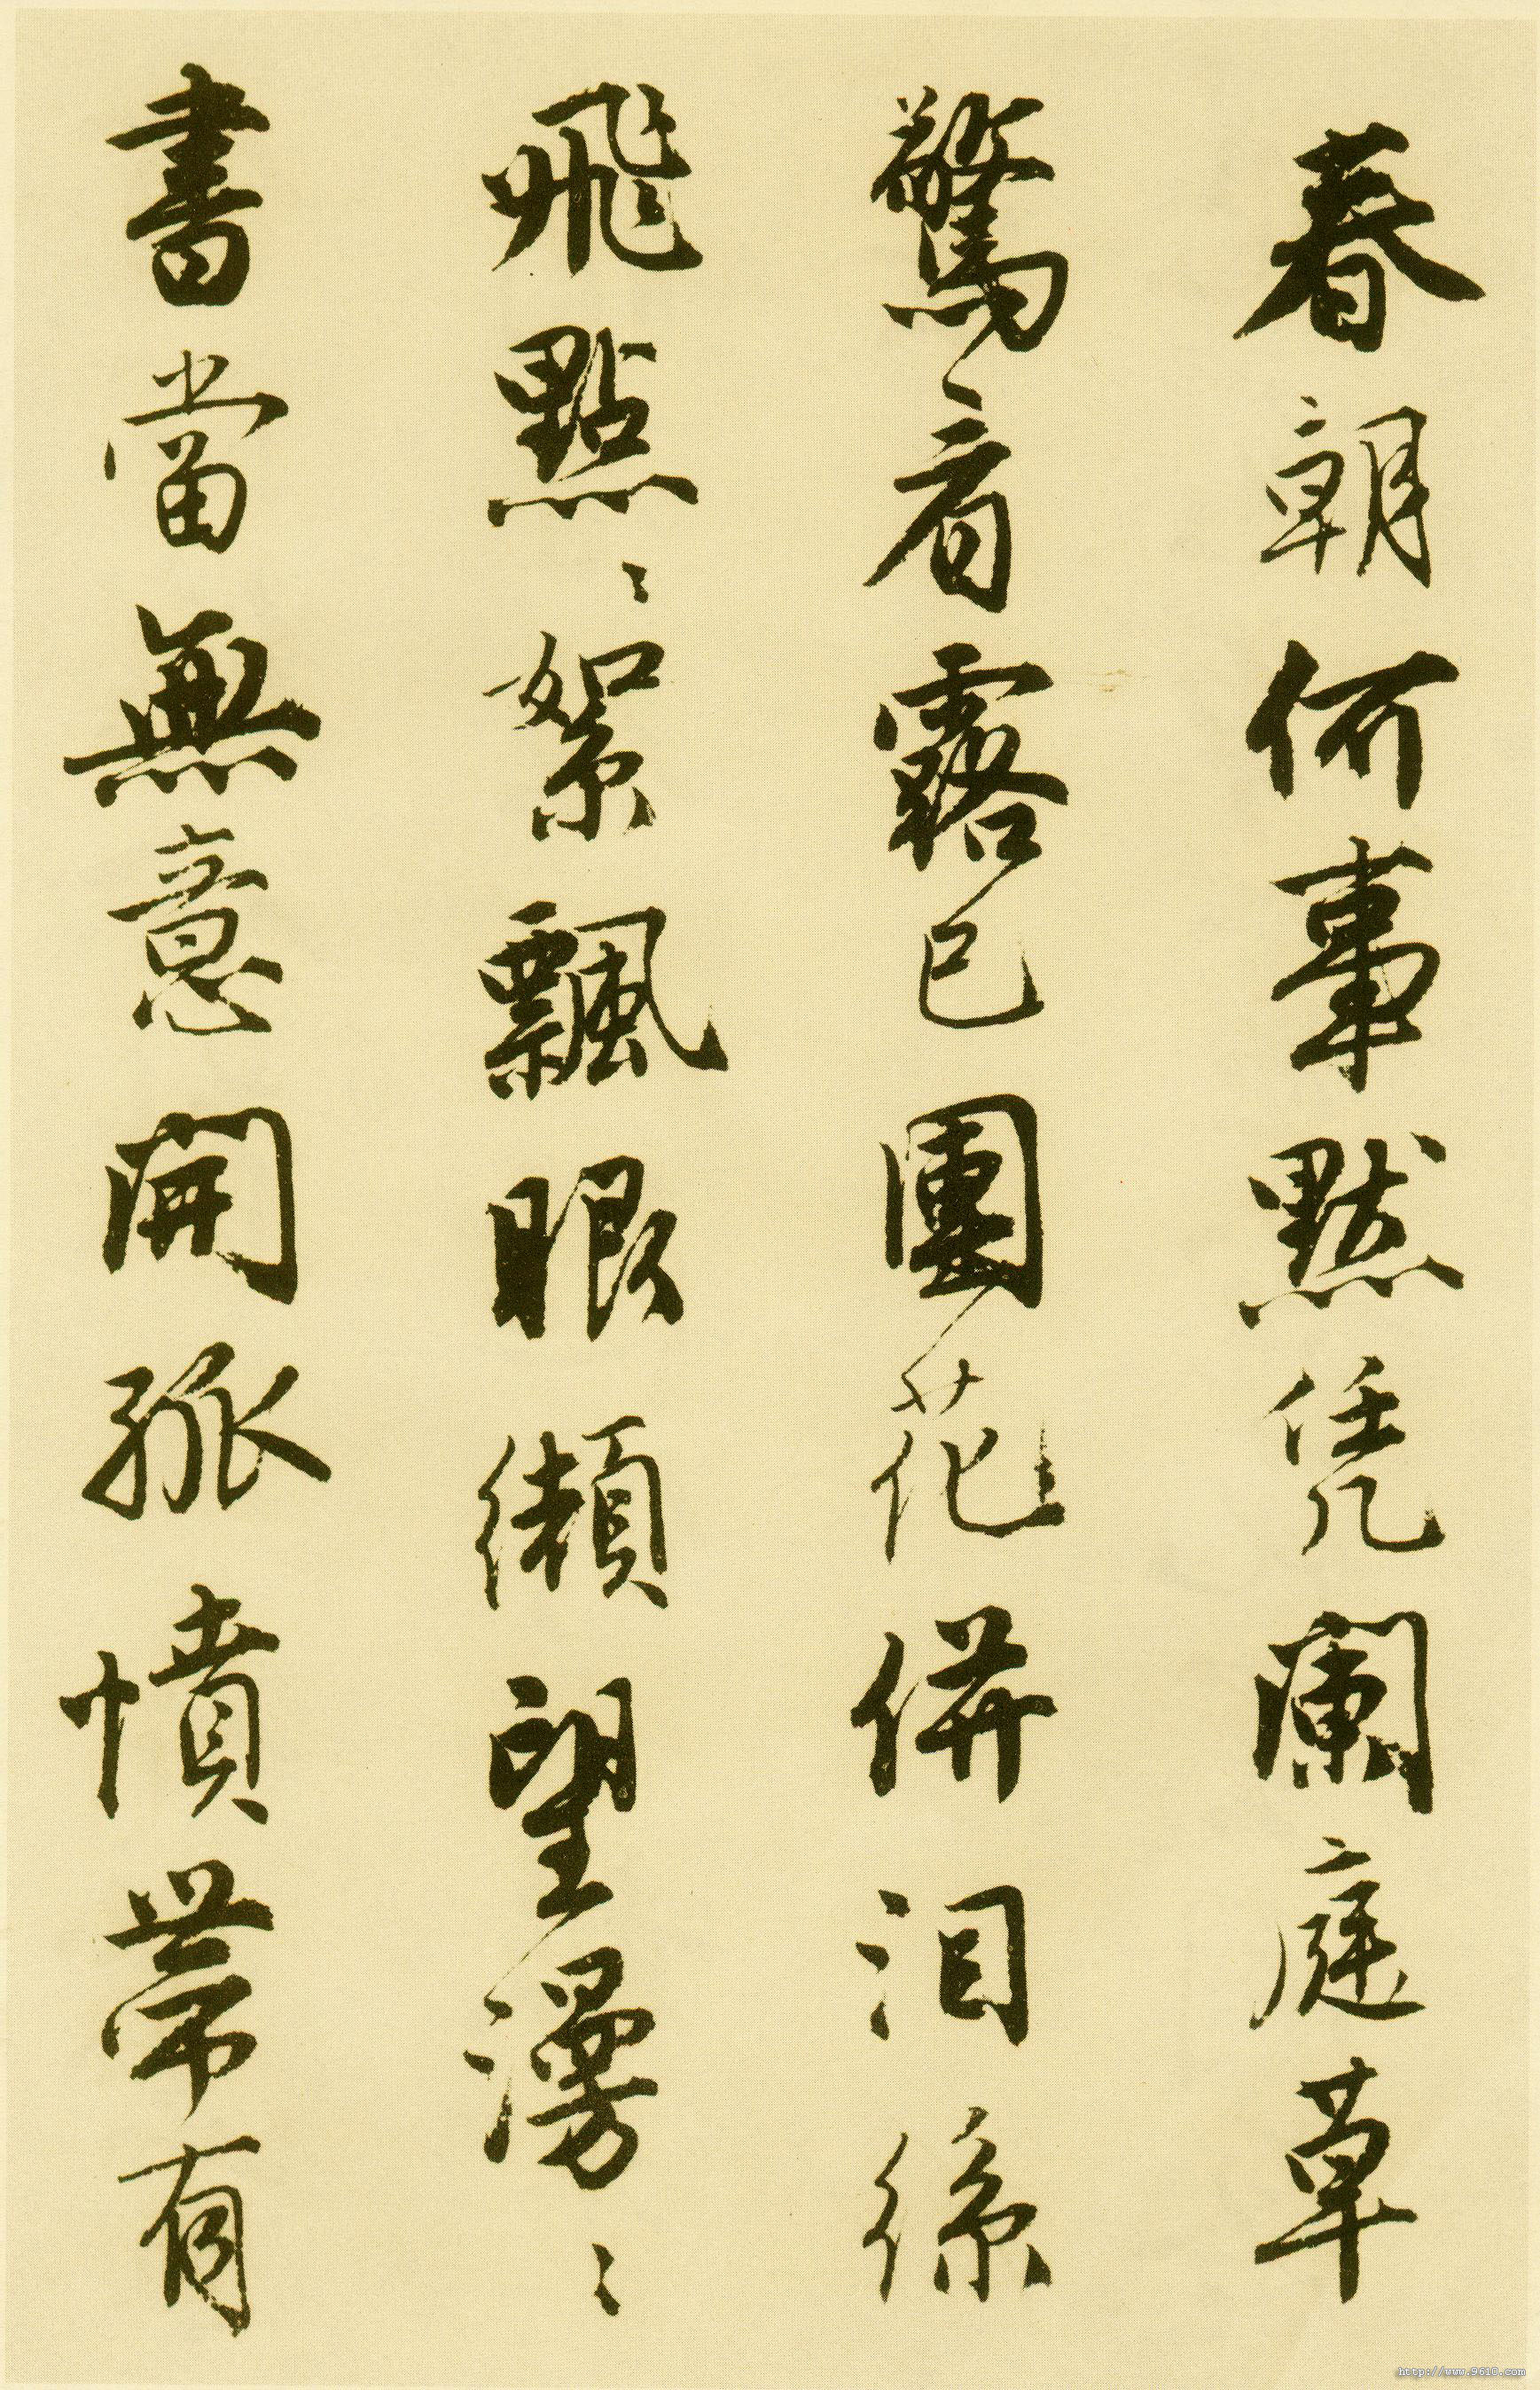 春朝何事默凭闌庭草
驚看露已團花併泪絲
飛點〻絮飄眼纈望漫〻
書當無意開孤憤帶有
http://www.9610.com